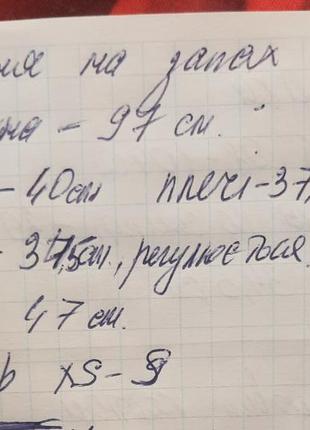 на запах
на - 97 см.
- 40 см плечі - 37,
- 37,5 см., регулюється.
47 см.
xS - S